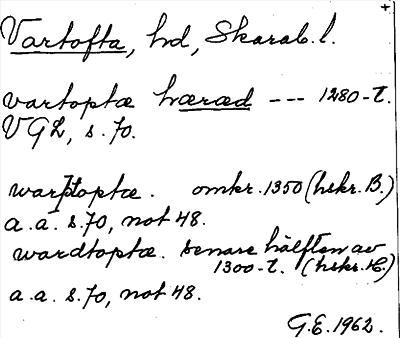 +
Vartofta, hd, Skarab. l.
vartoptæ hæræd --- 1280-t.
VGL, s. 70.
toptæ. omkr. 1350 (hskr. B.)
a.a. s. 70, not 48.
wardtoptæ. senare hälften av
1300-t. (hskr. K.)
a.a. s. 70, not 48.
G.E. 1962.